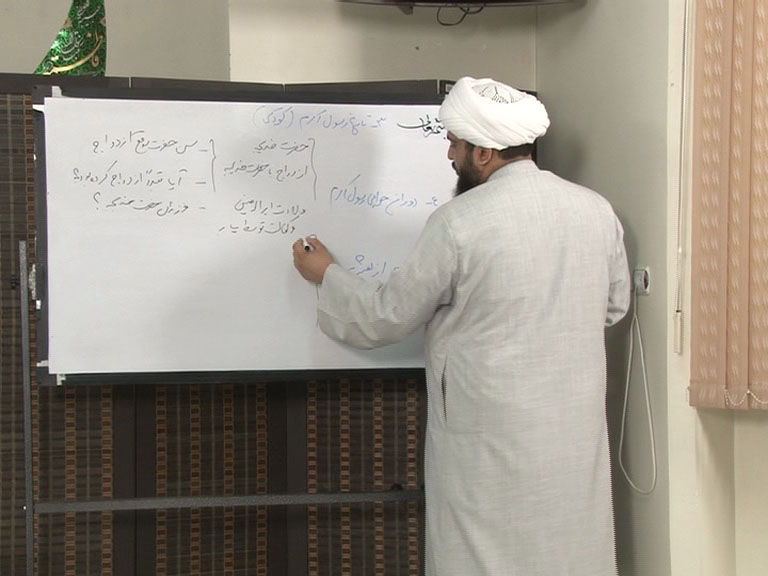 ۳- تاریخ رسول اکرم (کودکی)
حضرت خدیجه
ازدواج با حضرت خدیجه
- سن حضرت موقع ازدواج
- آیا قبلاً ازدواج کرده بود؟
- فرزندان حضرت خدیجه؟
۴- دوران جوانی رسول اکرم
ولادت امیرالمومنین
و کفالت توسط پیا